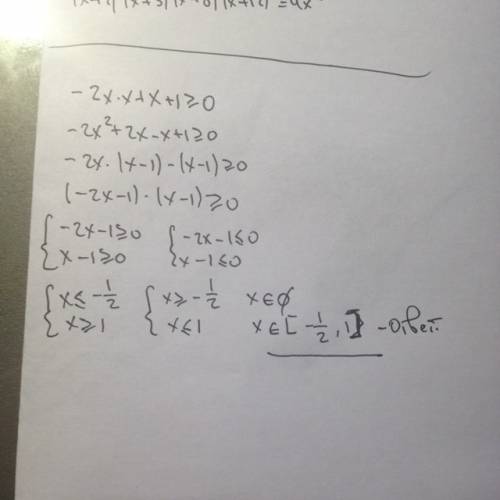 - 2x·x+x+1≥0
-2x²+2x-x+1≥0
-2x·(x-1)-(x-1)≥0
(-2x-1)·(x-1)≥0
{ -2x-1≥0 { -2x-1≤0
x-1≥0 x-1≤0
{ x≤-1/2 { x≥-1/2 x∈∅
x≥1 x≤1 x∈[-1/2,1] -Ответ.